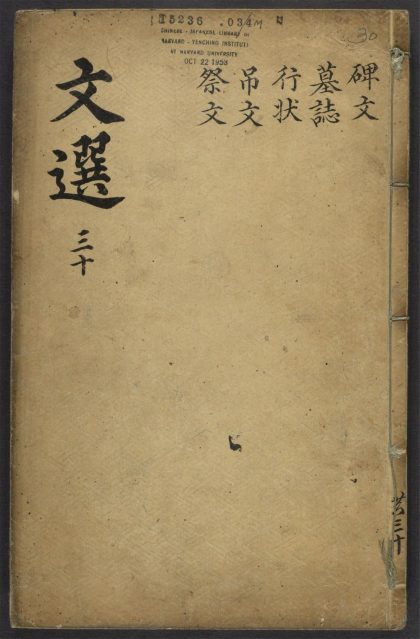 T5236 .034M
CHINESE - JAPANESE LIBRARY OF
HARVARD - YENCHING INSTITUTE
AT HARVARD UNIVERSITY
OCT 22 1953
30
碑文
墓誌
行状
吊文
祭文
文選
三十
共三十